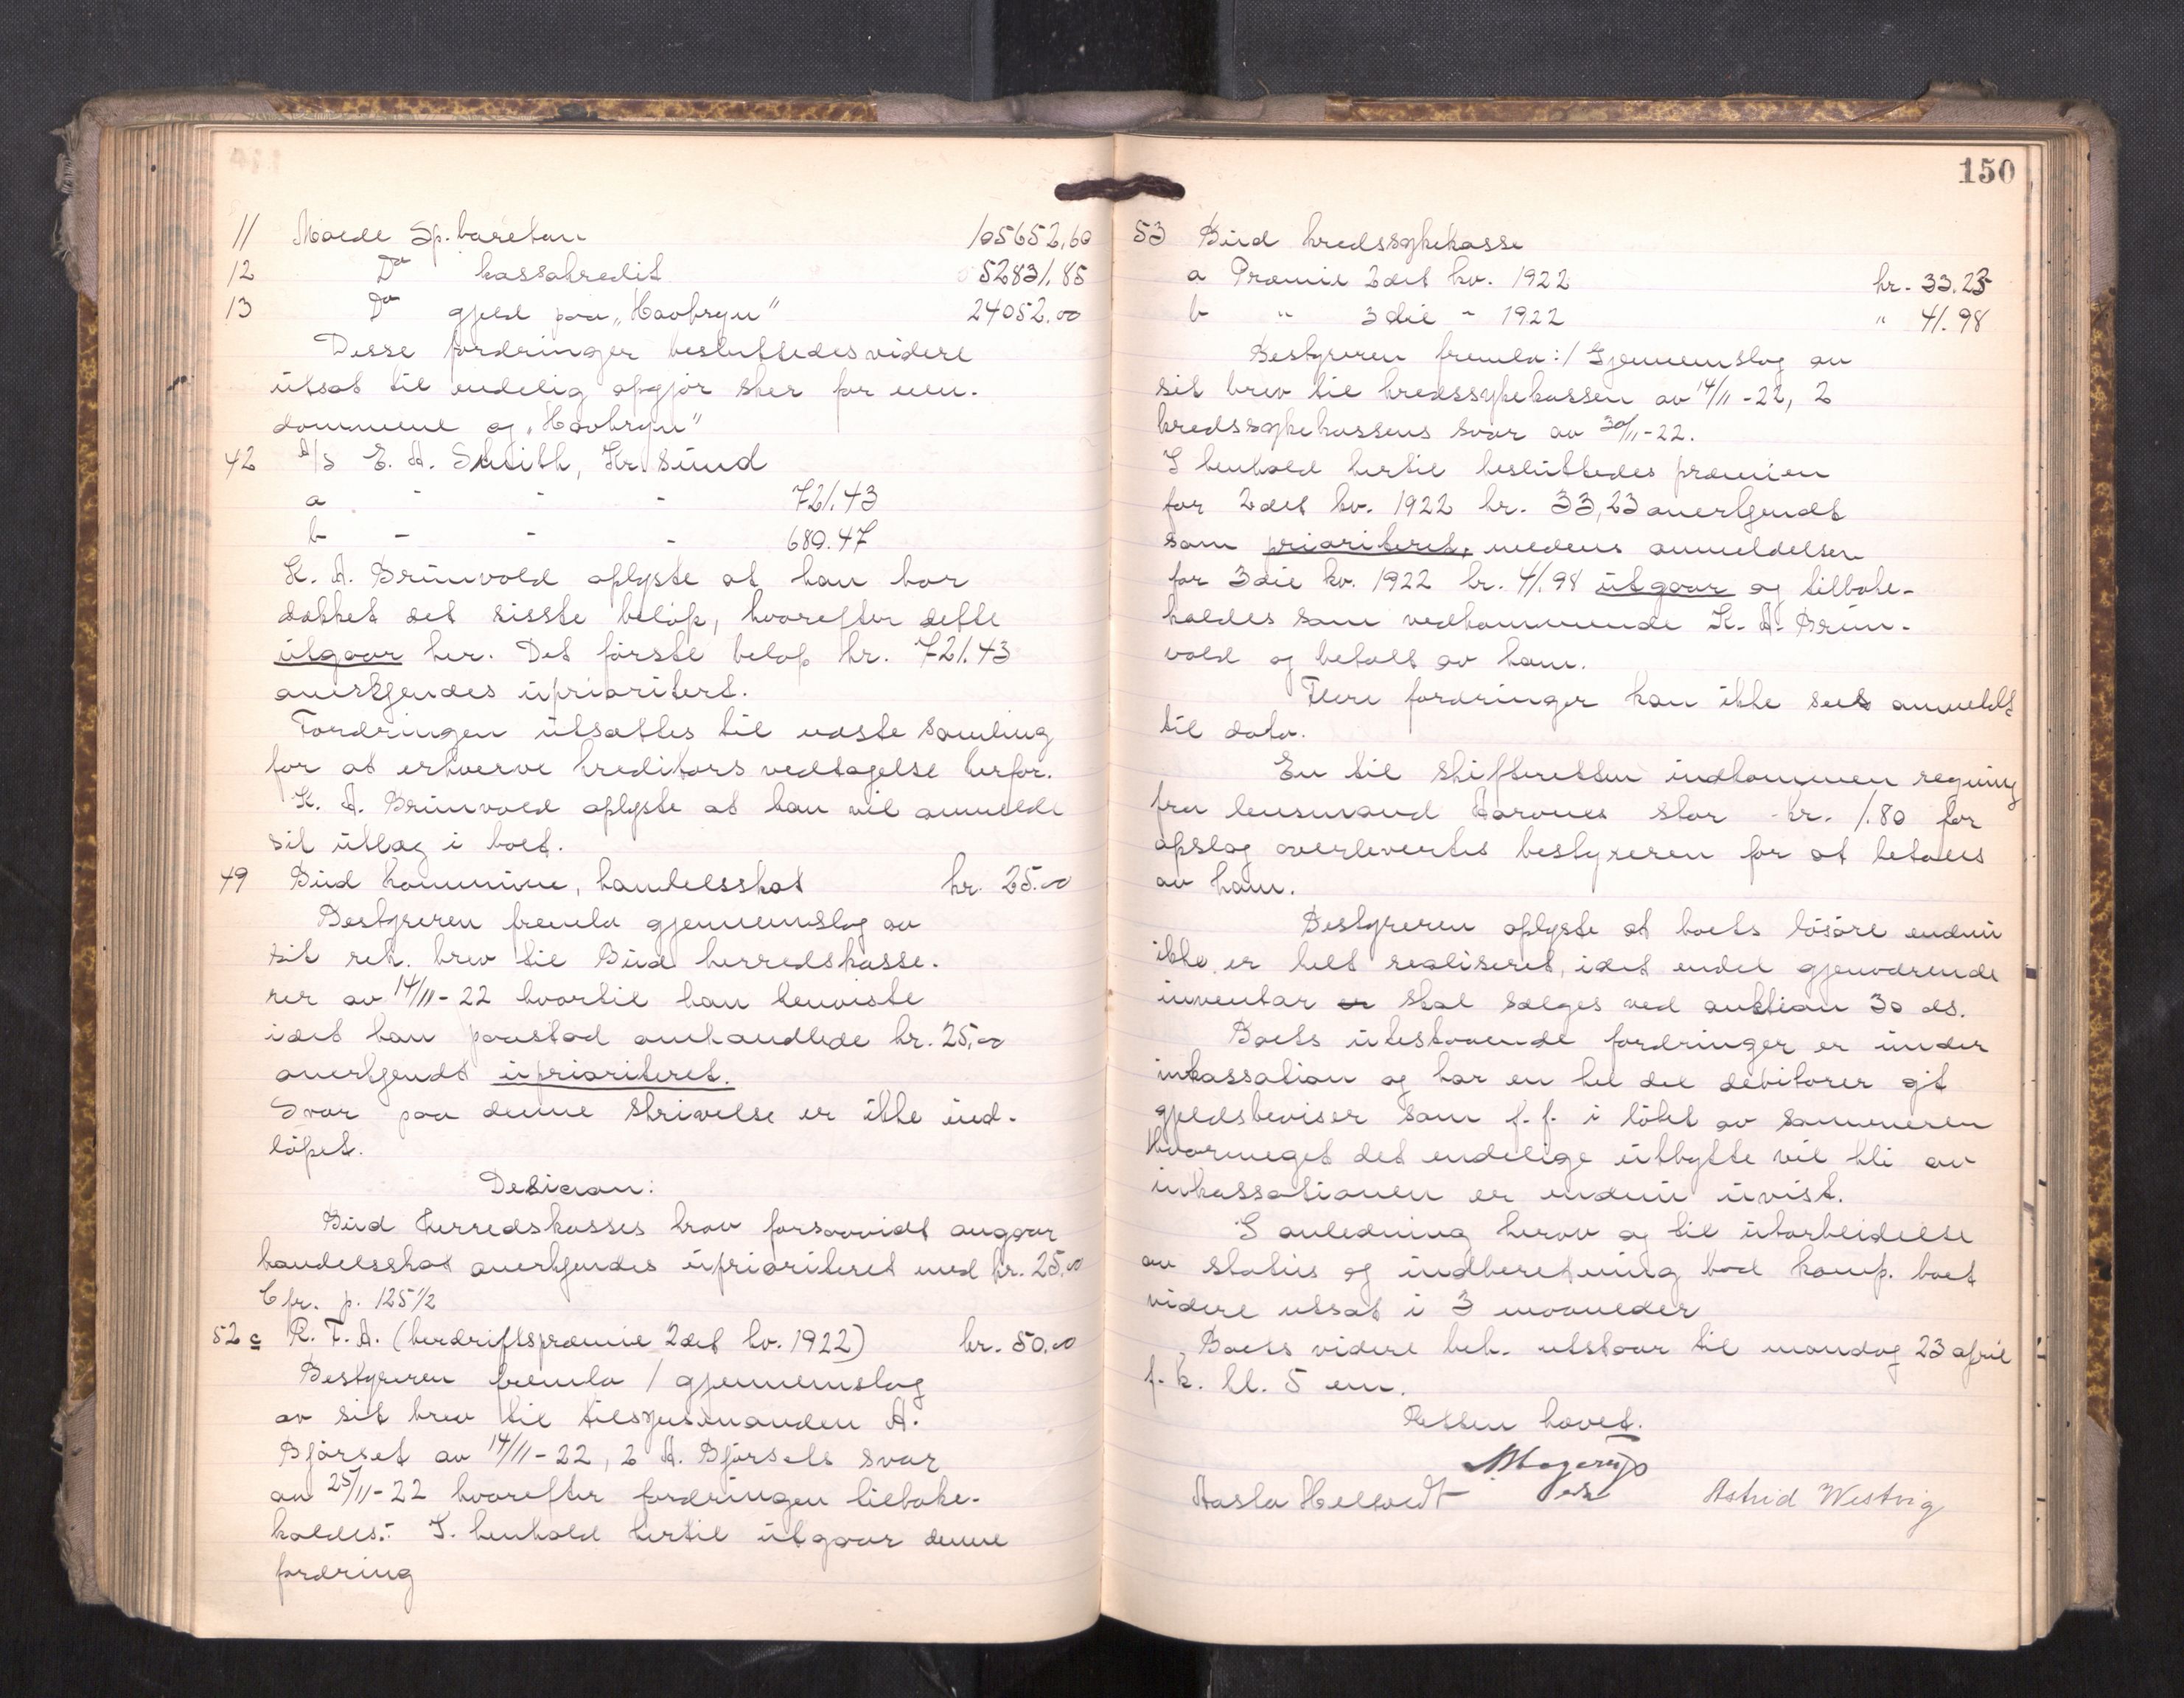 11 Molde Sp.banken 105652,60
12 Do kassakredit 52831.85
13 Do gjeld paa „Havbryn" 24052.00
Disse fordringer besluttedes videre
utsat til endelig opgjør sker for eien-
dommene og „Havbryn"
42 A/S E. A. Smith, Kr.sund
a - - - 721.43
b - - - 689.47
K. A. Brunvold oplyste at han har
dækket det sisste beløp, hvorefter dette
utgaar her. Det første beløp kr. 721.43
anerkjendes uprioritert.
Fordringen utsættes til næste samling
for at erhverve kreditors vedtagelse herfor.
K. A. Brunvold oplyste at han vil anmelde
sit utlæg i boet.
49 Bud Kommune, handelsskat kr. 25.00
Bestyreren fremla gjennemslag av
sit rek. brev til Bud herredskasse-
rer av 14/11-22 hvortil han henviste
idet han paastod omhandlede kr. 25,00
anerkjendt uprioriteret.
Svar paa denne skrivelse er ikke ind-
løpet.
Desicion:
Bud Herredskasses krav forsaavidt angaar
handelsskat anerkjendes uprioriteret med kr. 25.00
Cfr. p. 125 1/2
52 c R. F. A. (bedriftspræmie 2det kv. 1922) kr. 50.00
Bestyreren fremla 1 gjennemslag
av sit brev til tilsynsmanden A.
Bjørset av 14/11-22, 2 A. Bjørsets svar
av 25/11-22 hvorefter fordringen tilbake-
kaldes. I henhold hertil utgaar denne
fordring
150
53 Bud kredssykekasse
a Præmie 2det kv. 1922 kr. 33.23
b " 3die - 1922 " 41.98
Bestyreren fremla: 1 Gjennemslag av
sit brev til kredssykekassen av 14/11-22, 2
kredssykekassens svar av 30/11-22.
I henhold hertil besluttedes præmien
for 2det kv. 1922 kr. 33,23 anerkjendt
som prioriteret, medens anmeldelsen
for 3die kv. 1922 kr. 41.98 utgaar og tilbake-
kaldes som vedkommende K. A. Brun-
vold og betalt av ham.
Flere fordringer kan ikke sees anmeldt
til dato.
En til skifteretten indkommen regning
fra lensmand Harönes stor kr. 1.80 for
opslag overlevertes bestyreren for at betales
av ham.
Bestyreren oplyste at boets løsøre endnu
ikke er helt realiseret, idet endel gjenværende
inventar er skal sælges ved auktion 30 ds.
Boets utestaaende fordringer er under
inkassation og har en hel del debitorer git
gjeldsbeviser som f. f. i løbet av sommeren
Hvormeget det endelige utbytte vil bli av
inkassationen er endnu uvist.
I anledning herav og til utarbeidelse
av status og indberetning bad komp. boet
videre utsat i 3 maaneder
Boets videre beh. utstaar til mandag 23 april
f. k. kl. 5 em.
Retten hævet.
Aasta Helsvedt Astrid Westvig